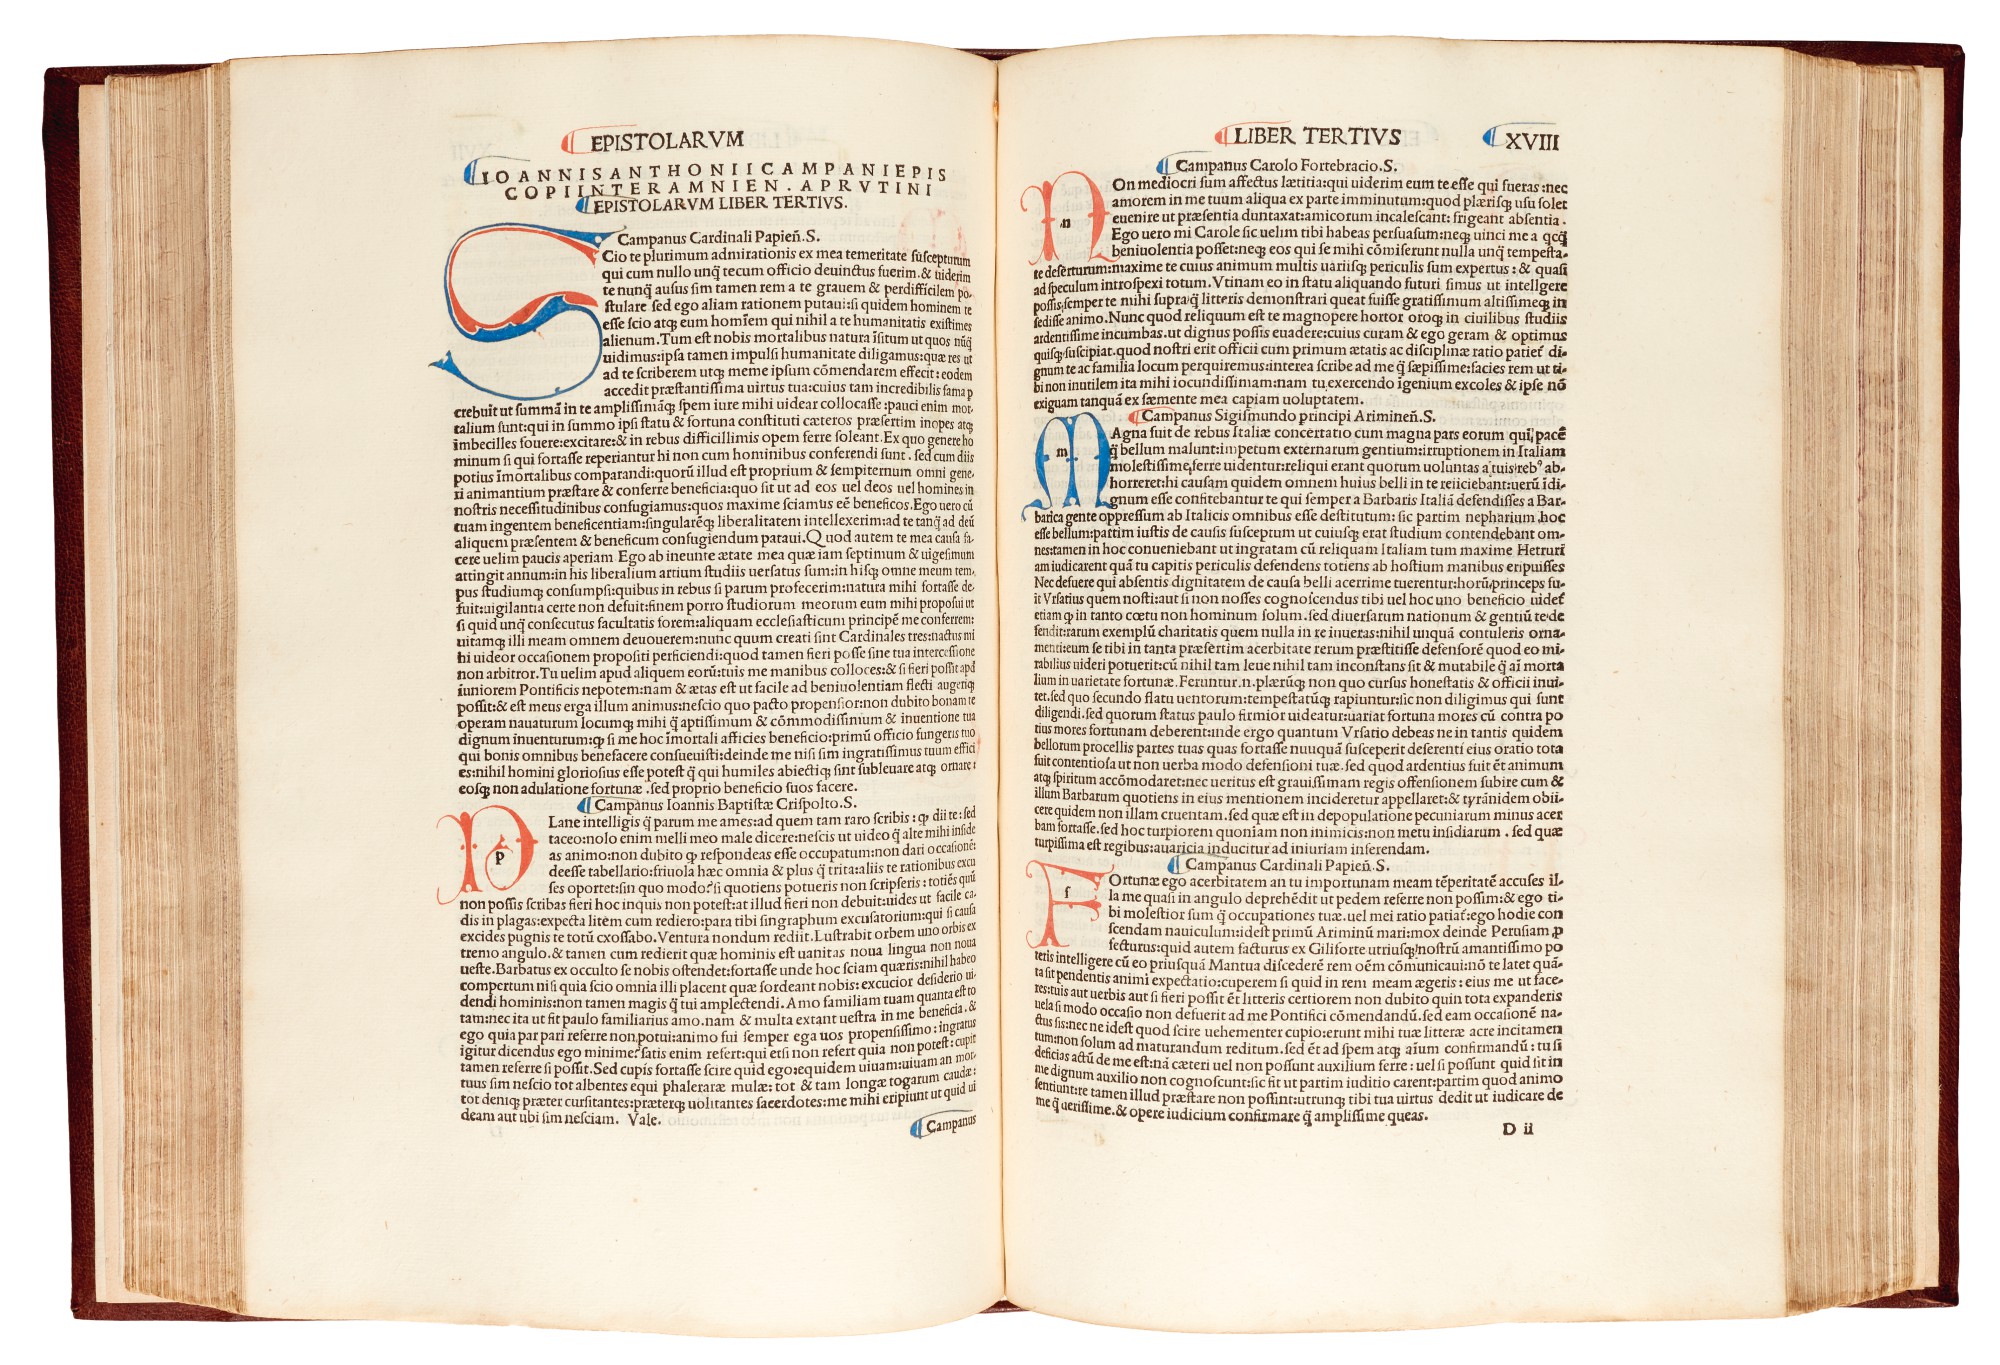 EPISTOLARVM
IOANNISANTHONIICAMPANIEPIS
COPIINTERAMNIEN.APRVTINI
EPISTOLARVM LIBER TERTIVS.
Campanus Cardinali Papieñ.S.
Cio te plurimum admirationis ex mea temeritate ſuſcepturum
qui cum nullo unq̃ tecum officio deuinctus fuerim.& uiderim
te nunq̃ auſus ſim tamen rem a te grauem & perdifficilem po-
ſtulare ſed ego aliam rationem putaui:ſi quidem hominem te
eſſe ſcio atqꝫ eum hom̄iem qui nihil a te humanitatis exiſtimes
alienum.Tum eſt nobis mortalibus natura īſitum ut quos nūq̃
uidimus:ipſa tamen impulſi humanitate diligamus:quæ res ut
ad te ſcriberem utqꝫ meme ipſum cōmendarem effecit:eodem
accedit præſtantiſſima uirtus tua:cuius tam incredibilis fama p
crebuit ut ſummā in te ampliſſimāqꝫ ſpem iure mihi uidear collocaſſe:pauci enim mor-
talium ſunt:qui in ſummo ipſi ſtatu & fortuna conſtituti cæteros præſertim inopes atqꝫ
imbecilles fouere:excitare:& in rebus difficillimis opem ferre ſoleant.Ex quo genere ho
minum ſi qui fortaſſe reperiantur hi non cum hominibus conferendi ſunt.ſed cum diis
potius īmortalibus comparandi:quorū illud eſt proprium & ſempiternum omni gene-
ri animantium præſtare & conferre beneficia:quo fit ut ad eos uel deos uel homines in
noſtris neceſſitudinibus confugiamus:quos maxime ſciamus eē beneficos.Ego uero cū
tuam ingentem beneficentiam:ſingularēqꝫ liberalitatem intellexerim:ad te tanq̃ ad deū
aliquem præſentem & beneficum confugiendum pataui.Quod autem te mea cauſa fa-
cere uelim paucis aperiam Ego ab ineunte ætate mea quæ iam ſeptimum & uigeſimum
attingit annum:in his liberalium artium ſtudiis uerſatus ſum:in hiſqꝫ omne meum tem-
pus ſtudiumqꝫ conſumpſi:quibus in rebus ſi parum profecerim:natura mihi fortaſſe de-
fuit:uigilantia certe non defuit:finem porro ſtudiorum meorum eum mihi propoſui ut
ſi quid unq̃ conſecutus facultatis forem:aliquam eccleſiaſticum principē me conferrem:
uitamqꝫ illi meam omnem deuouerem:nunc quum creati ſint Cardinales tres:nactus mi
hi uideor occaſionem propoſiti perficiendi:quod tamen fieri poſſe ſine tua interceſſione
non arbitror.Tu uelim apud aliquem eorū:tuis me manibus colloces:& ſi fieri poſſit apd
iuniorem Pontificis nepotem:nam & ætas eſt ut facile ad beniuolentiam flecti augeriqꝫ
poſſit:& eſt meus erga illum animus:neſcio quo pacto propenſior:non dubito bonam te
operam nauaturum locumqꝫ mihi q̃ aptiſſimum & cōmodiſſimum & inuentione tua
dignum inuenturum:ꝙ ſi me hoc īmortali afficies beneficio:primū officio fungeris tuo
qui bonis omnibus benefacere conſueuiſti:deinde me niſi ſim ingratiſſimus tuum effici
es:nihil homini glorioſius eſſe poteſt q̃ qui humiles abiectiqꝫ ſint ſubleuare atqꝫ ornare:
eoſqꝫ non adulatione fortunæ.ſed proprio beneficio ſuos facere.
Campanus Ioannis Baptiſtæ Criſpolto.S.
p
Lane intelligis q̃ parum me ames:ad quem tam raro ſcribis:ꝙ dii te:ſed
taceo:nolo enim melli meo male dicere:neſcis ut uideo q̃ alte mihi inſide
as animo:non dubito ꝙ reſpondeas eſſe occupatum:non dari occaſionē:
deeſſe tabellario:friuola hæc omnia & plus q̃ trita:aliis te rationibus excu
ſes oportet:ſin quo modo?ſi quotiens potueris non ſcripſeris:totiēs quū
non poſſis ſcribas fieri hoc inquis non poteſt:at illud fieri non debuit:uides ut facile ca-
dis in plagas:expecta litem cum rediero:para tibi ſingraphum excuſatorium:qui ſi cauſa
excides pugnis te totū cxoſſabo.Ventura nondum rediit.Luſtrabit orbem uno orbis ex
tremo angulo.& tamen cum redierit quæ hominis eſt uanitas noua lingua non noua
ueſte.Barbatus ex occulto ſe nobis oſtendet:fortaſſe unde hoc ſciam quæris:nihil habeo
compertum niſi quia ſcio omnia illi placent quæ ſordeant nobis:excucior deſiderio ui-
dendi hominis:non tamen magis q̃ tui amplectendi.Amo familiam tuam quanta eſt to
tam:nec ita ut fit paulo familiarius amo.nam & multa extant ueſtra in me beneficia.&
ego quia par pari referre non potui:animo fui ſemper ega uos propenſiſſimo:ingratus
igitur dicendus ego minime?ſatis enim refert:qui etſi non refert quia non poteſt:cupit
tamen referre ſi poſſit.Sed cupis fortaſſe ſcire quid ego:equidem uiuam:uiuam an mor-
tuus ſim neſcio tot albentes equi phaleraræ mulæ:tot & tam longæ togarum caudæ:
tot deniqꝫ præter curſitantes:præterqꝫ uolitantes ſacerdotes:me mihi eripiunt ut quid ui
deam aut ubi ſim neſciam. Vale.
Campanus
LIBER TERTIVS
XVIII
Campanus Carolo Fortebracio.S.
n
On mediocri ſum affectus lætitia:qui uiderim eum te eſſe qui fueras:nec
amorem in me tuum aliqua ex parte imminutum:quod plæriſqꝫ uſu ſolet
euenire ut præſentia duntaxat:amicorum incaleſcant:frigeant abſentia.
Ego uero mi Carole ſic uelim tibi habeas perſuaſum:neqꝫ uinci me a qcq̃
beniuolentia poſſet:neqꝫ eos qui ſe mihi cōmiſerunt nulla unq̃ tempeſta-
te deſerturum:maxime te cuius animum multis uariiſqꝫ periculis ſum expertus:& quaſi
ad ſpeculum introſpexi totum.Vtinam eo in ſtatu aliquando futuri ſimus ut intellgere
poſſis:ſemper te mihi ſupra q̃ litteris demonſtrari queat fuiſſe gratiſſimum altiſſimeqꝫ in
ſediſſe animo.Nunc quod reliquum eſt te magnopere hortor oroqꝫ in ciuilibus ſtudiis
ardentiſſime incumbas.ut dignus poſſis euadere:cuius curam & ego geram & optimus
quiſqꝫ ſuſcipiat.quod noſtri erit officii cum primum ætatis ac diſciplinæ ratio patiet̄ di-
gnum te ac familia locum perquiremus:interea ſcribe ad me q̃ ſæpiſſime:facies rem ut ti-
bi non inutilem ita mihi iocundiſſimam:nam tu exercendo īgenium excoles & ipſe nō
exiguam tanquā ex ſæmente mea capiam uoluptatem.
Campanus Sigiſmundo principi Arimineñ.S.
m
Agna fuit de rebus Italiæ concertatio cum magna pars eorum qui pacē
q̃ bellum malunt:impetum externarum gentium:irruptionem in Italiam
moleſtiſſime ferre uidentur:reliqui erant quorum uoluntas a tuis rebꝰ ab-
horreret:hi cauſam quidem omnem huius belli in te reiiciebant:uerū īdi-
gnum eſſe confitebantur te qui ſemper a Barbaris Italiā defendiſſes a Bar-
barica gente oppreſſum ab Italicis omnibus eſſe deſtitutum:ſic partim nepharium hoc
eſſe bellum:partim iuſtis de cauſis ſuſceptum ut cuiuſqꝫ erat ſtudium contendebant om-
nes:tamen in hoc conueniebant ut ingratam cū reliquam Italiam tum maxime Hetruri
am iudicarent quā tu capitis periculis defendens totiens ab hoſtium manibus eripuiſſes
Nec defuere qui abſentis dignitatem de cauſa belli acerrime tuerentur:horū princeps fu-
it Vrſatius quem noſti:aut ſi non noſſes cognoſcendus tibi uel hoc uno beneficio uidet̄
etiam ꝙ in tanto cœtu non hominum ſolum.ſed diuerſarum nationum & gentiū te de
fendit:rarum exemplū charitatis quem nulla in re inueras:nihil unquā contuleris orna-
menti:eum ſe tibi in tanta præſertim acerbitate rerum præſtitiſſe defenſorē quod eo mi-
rabilius uideri potuerit:cū nihil tam leue nihil tam inconſtans ſit & mutabile q̃ aī morta
lium in uarietate fortunæ.Feruntur.n.plærūqꝫ non quo curſus honeſtatis & officii inui-
tet.ſed quo ſecundo flatu uentorum:tempeſtatūqꝫ rapiuntur:ſic non diligimus qui ſunt
diligendi.ſed quorum ſtatus paulo firmior uideatur:uariat fortuna mores cū contra po
tius mores fortunam deberent:unde ergo quantum Vrſatio debeas ne in tantis quidem
bellorum procellis partes tuas quas fortaſſe nuuquā ſuſceperit deferenti eius oratio tota
fuit contentioſa ut non uerba modo defenſioni tuæ.ſed quod ardentius fuit ēt animum
atqꝫ ſpiritum accōmodaret:nec ueritus eſt grauiſſimam regis offenſionem ſubire cum &
illum Barbarum quotiens in eius mentionem incideretur appellaret:& tyrānidem obii-
cere quidem non illam cruentam.ſed quæ eſt in depopulatione pecuniarum minus acer
bam fortaſſe.ſed hoc turpiorem quoniam non inimicis:non metu inſidiarum.ſed quæ
turpiſſima eſt regibus:auaricia inducitur ad iniuriam inferendam.
Campanus Cardinali Papieñ.S.
f
Ortunæ ego acerbitatem an tu importunam meam tēperitatē accuſes il-
la me quaſi in angulo deprehēdit ut pedem referre non poſſim:& ego ti-
bi moleſtior ſum q̃ occupationes tuæ.uel mei ratio patiat̄:ego hodie con
ſcendam nauiculum:ideſt primū Ariminū mari:mox deinde Peruſiam ꝓ
fecturus:quid autem facturus ex Giliforte utriuſqꝫ noſtrū amantiſſimo po
teris intelligere cū eo priuſquā Mantua diſcederē rem oēm cōmunicaui:nō te latet quā-
ta ſit pendentis animi expectatio:cuperem ſi quid in rem meam ægeris:eius me ut face-
res:tuis aut uerbis aut ſi fieri poſſit ēt litteris certiorem non dubito quin tota expanderis
uela ſi modo occaſio non defuerit ad me Pontifici cōmendandū.ſed eam occaſionē na-
ctus ſis:nec ne ideſt quod ſcire uehementer cupio:erunt mihi tuæ litteræ acre incitamen
tum:non ſolum ad maturandum reditum.ſed ēt ad ſpem atqꝫ aīum confirmandū:tu ſi
deficias actū de me eſt:nā cæteri uel non poſſunt auxilium ferre:uel ſi poſſunt quid ſit in
me dignum auxilio non cognoſcunt:ſic fit ut partim iuditio carent:partim quod animo
ſentiunt:re tamen illud præſtare non poſſint:utrunqꝫ tibi tua uirtus dedit ut iudicare de
me q̃ ueriſſime.& opere iudicium confirmare q̃ ampliſſime queas.
D ii